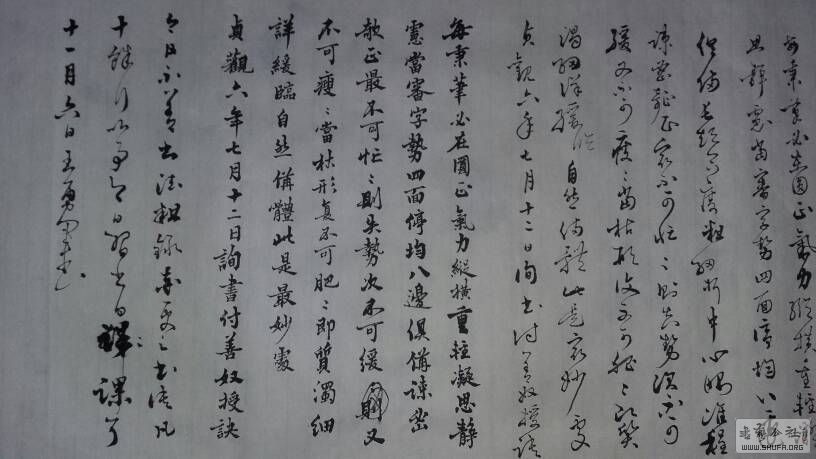 每秉筆必在圓正氣力縱橫重輕
思靜慮當審字勢四面停均八
俱備長短合度粗細折中心眼準程
疎密欹正最不可忙〻則失勢次不可
緩又不可瘦〻當枯形復不可肥〻即質
濁細詳緩臨自然備體此是最妙處
貞觀六年七月十二日詢書付善奴授訣
每秉筆必在圓正氣力縱橫重輕凝思靜
慮當審字勢四面停均八邊俱備疎密
欹正最不可忙〻則失勢次不可緩〻則又
不可瘦〻當枯形復不可肥〻即質濁細
詳緩臨自然備體此是最妙處
貞觀六年七月十二日詢書付善奴授訣
今日不善書法粗錄書法凡
十餘行以今日習書日課
十一月六日王勇
書藝公社
WWW.SHUFA.ORG